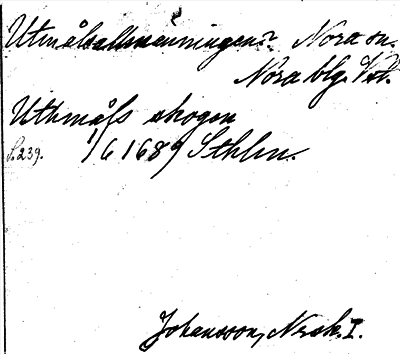 Utmålsallmänningen? Nora sn.
Nora blg. Vstl.
Uthmåls skogen
S. 239. 1/6 1689 Sthlm.
Johansson, Norask. I.